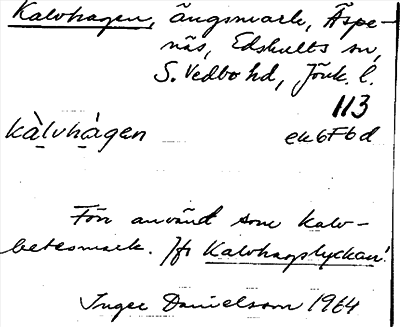 Kalvhagen, ängsmark, Äspe-
näs, Edshults sn,
S. Vedbo hd, Jönk. l.
113
kàlvhàgen ek6F6d
Förr använd som kalv-
betesmark. Jfr Kalvhagslyckan!
Inger Danielsson 1964